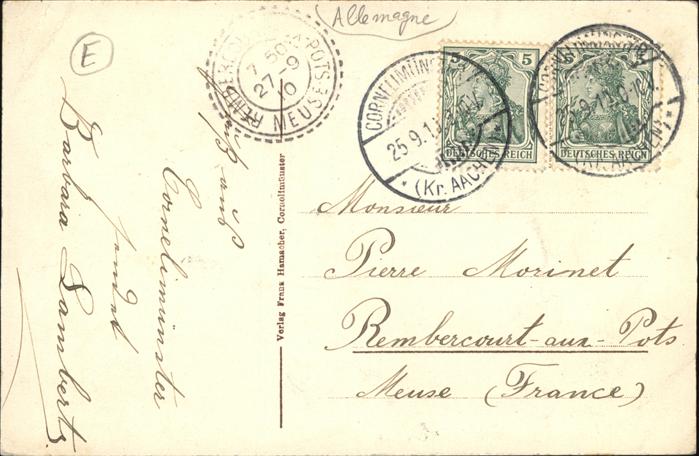 (Allemagne)
E
REMBERCOURT-AUX-POTS
7 50
27-9
10
MEUSE
5 5
DEUTSCHES REICH
DEUTSCHES REICH
CORNELIMÜNSTER
25.9.10
* (Kr. AACHEN) *
CORNELIMÜNSTER
25.9.10
(Kr. AACHEN)
Gruß aus
Cornelimünster
sendet
Barbara Lambertz
Verlag Franz Hamacher, Cornelimünster
Monsieur
Pierre Morinet
Rembercourt-aux-Pots
Meuse (France)